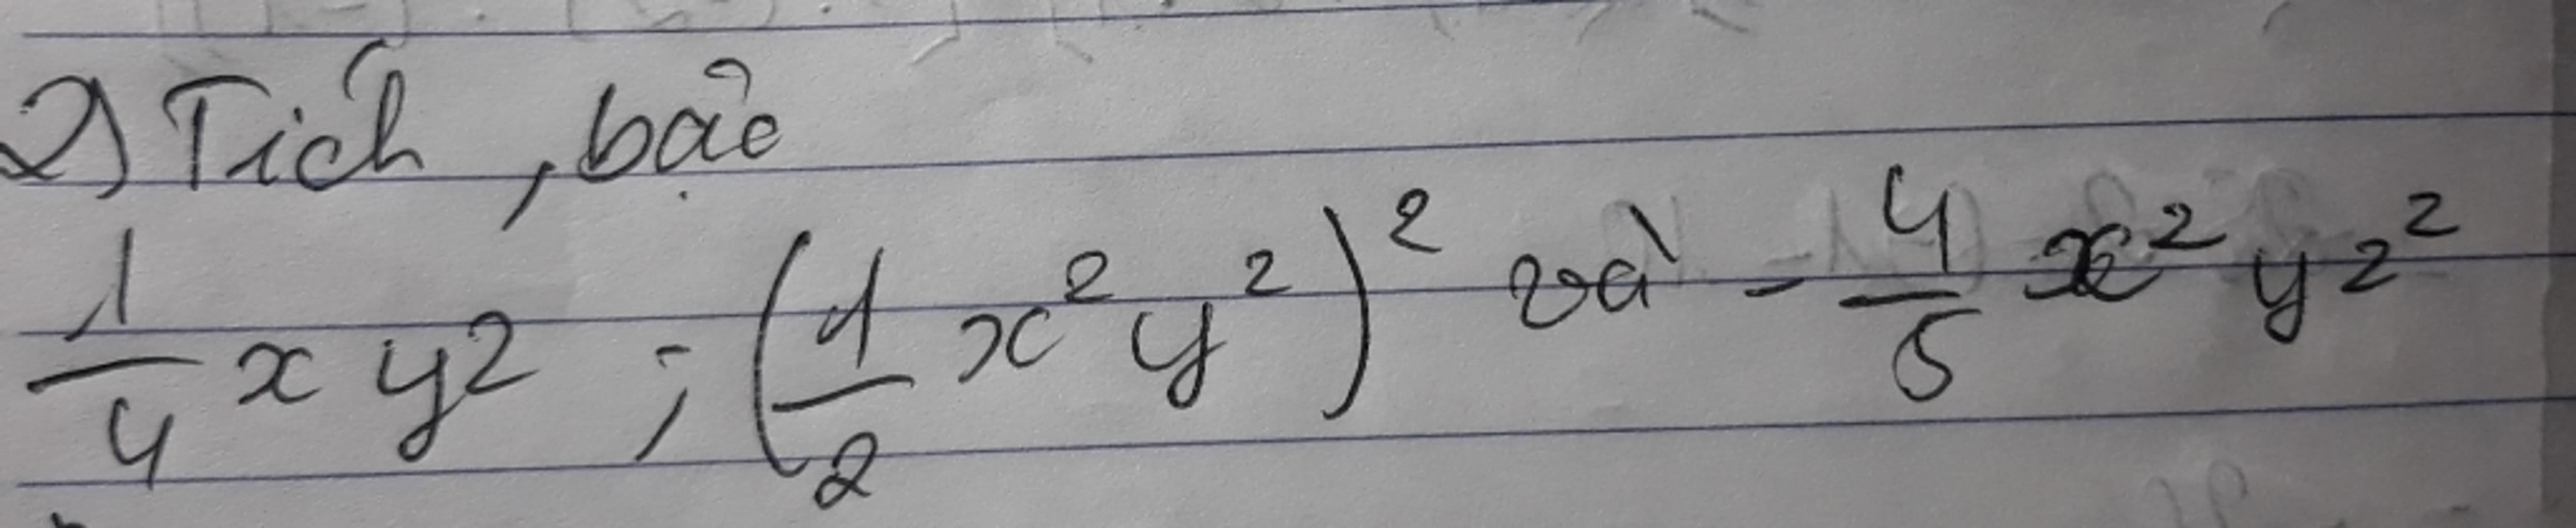 2) Tích, bậc
1/4 x y² ; (1/2 x² y²)² và - 4/5 x² y z²